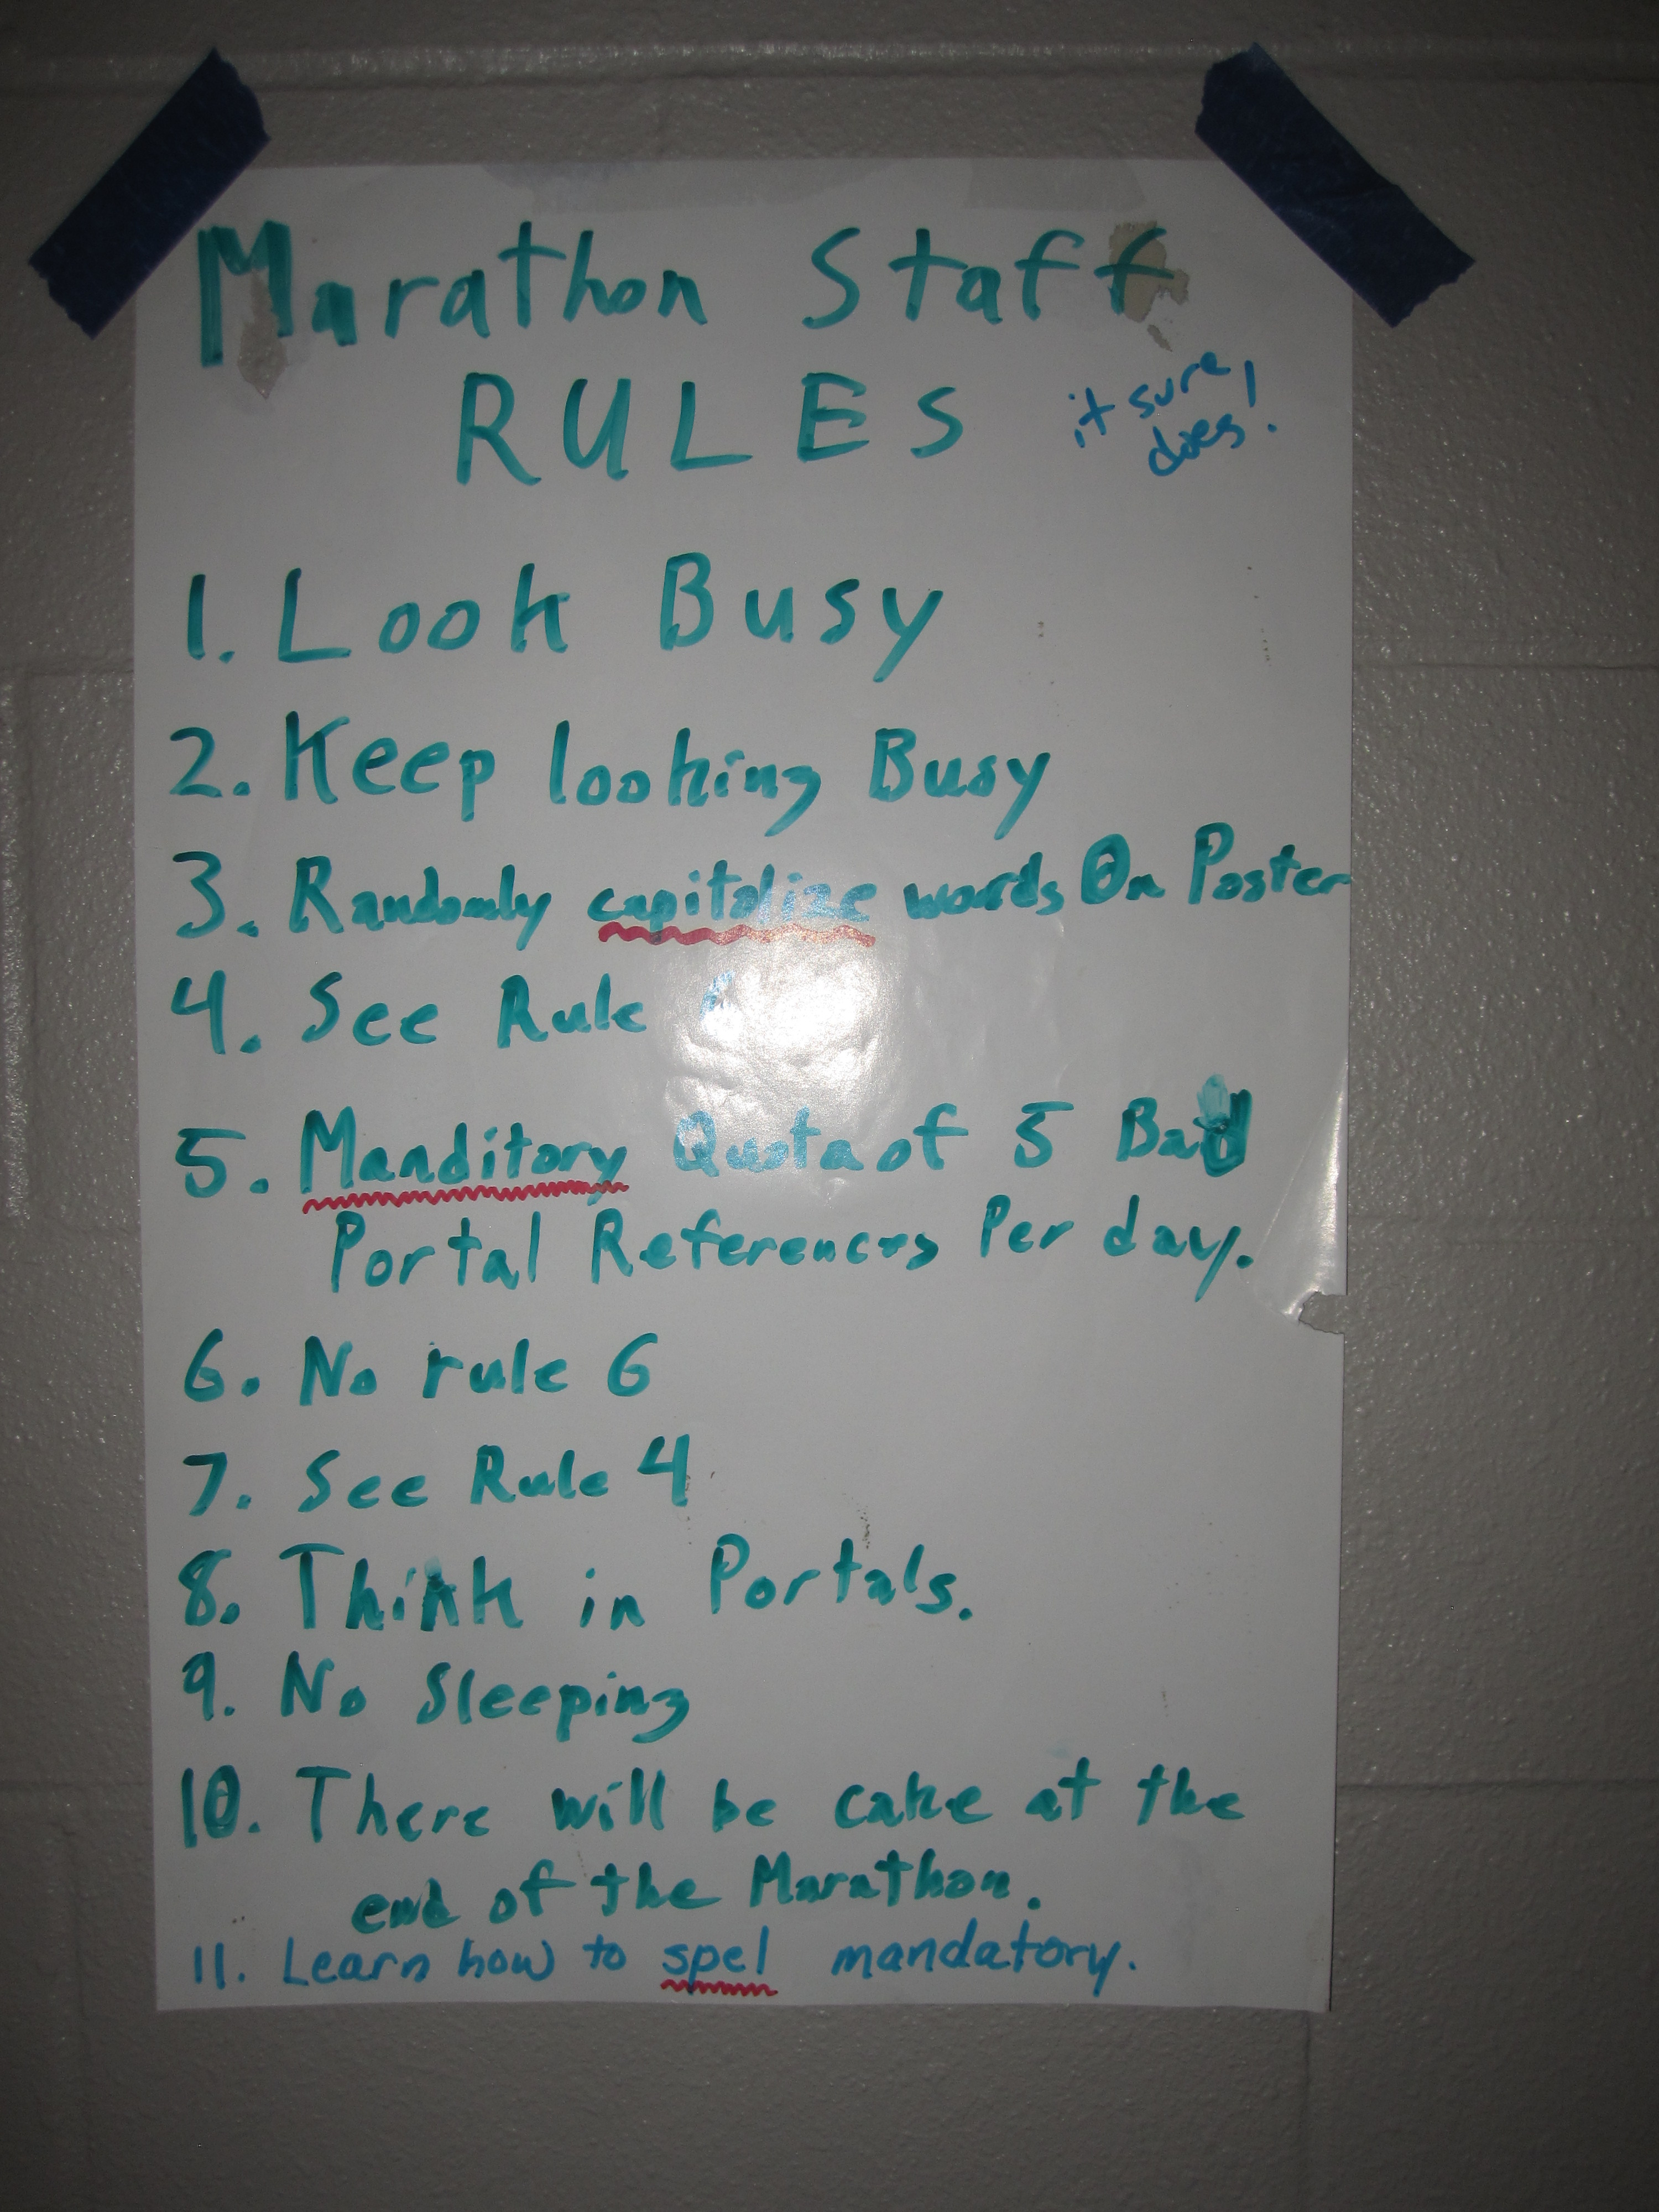 Marathon Staff
RULES
it sure
does!
1. Look Busy
2. Keep looking Busy
3. Randomly capitalize words On Poster
4. See Rule
5. Manditory Quota of 5 Bad
Portal References Per day.
6. No rule 6
7. See Rule 4
8. Think in Portals.
9. No Sleeping
10. There will be cake at the
end of the Marathon.
11. Learn how to spel mandatory.